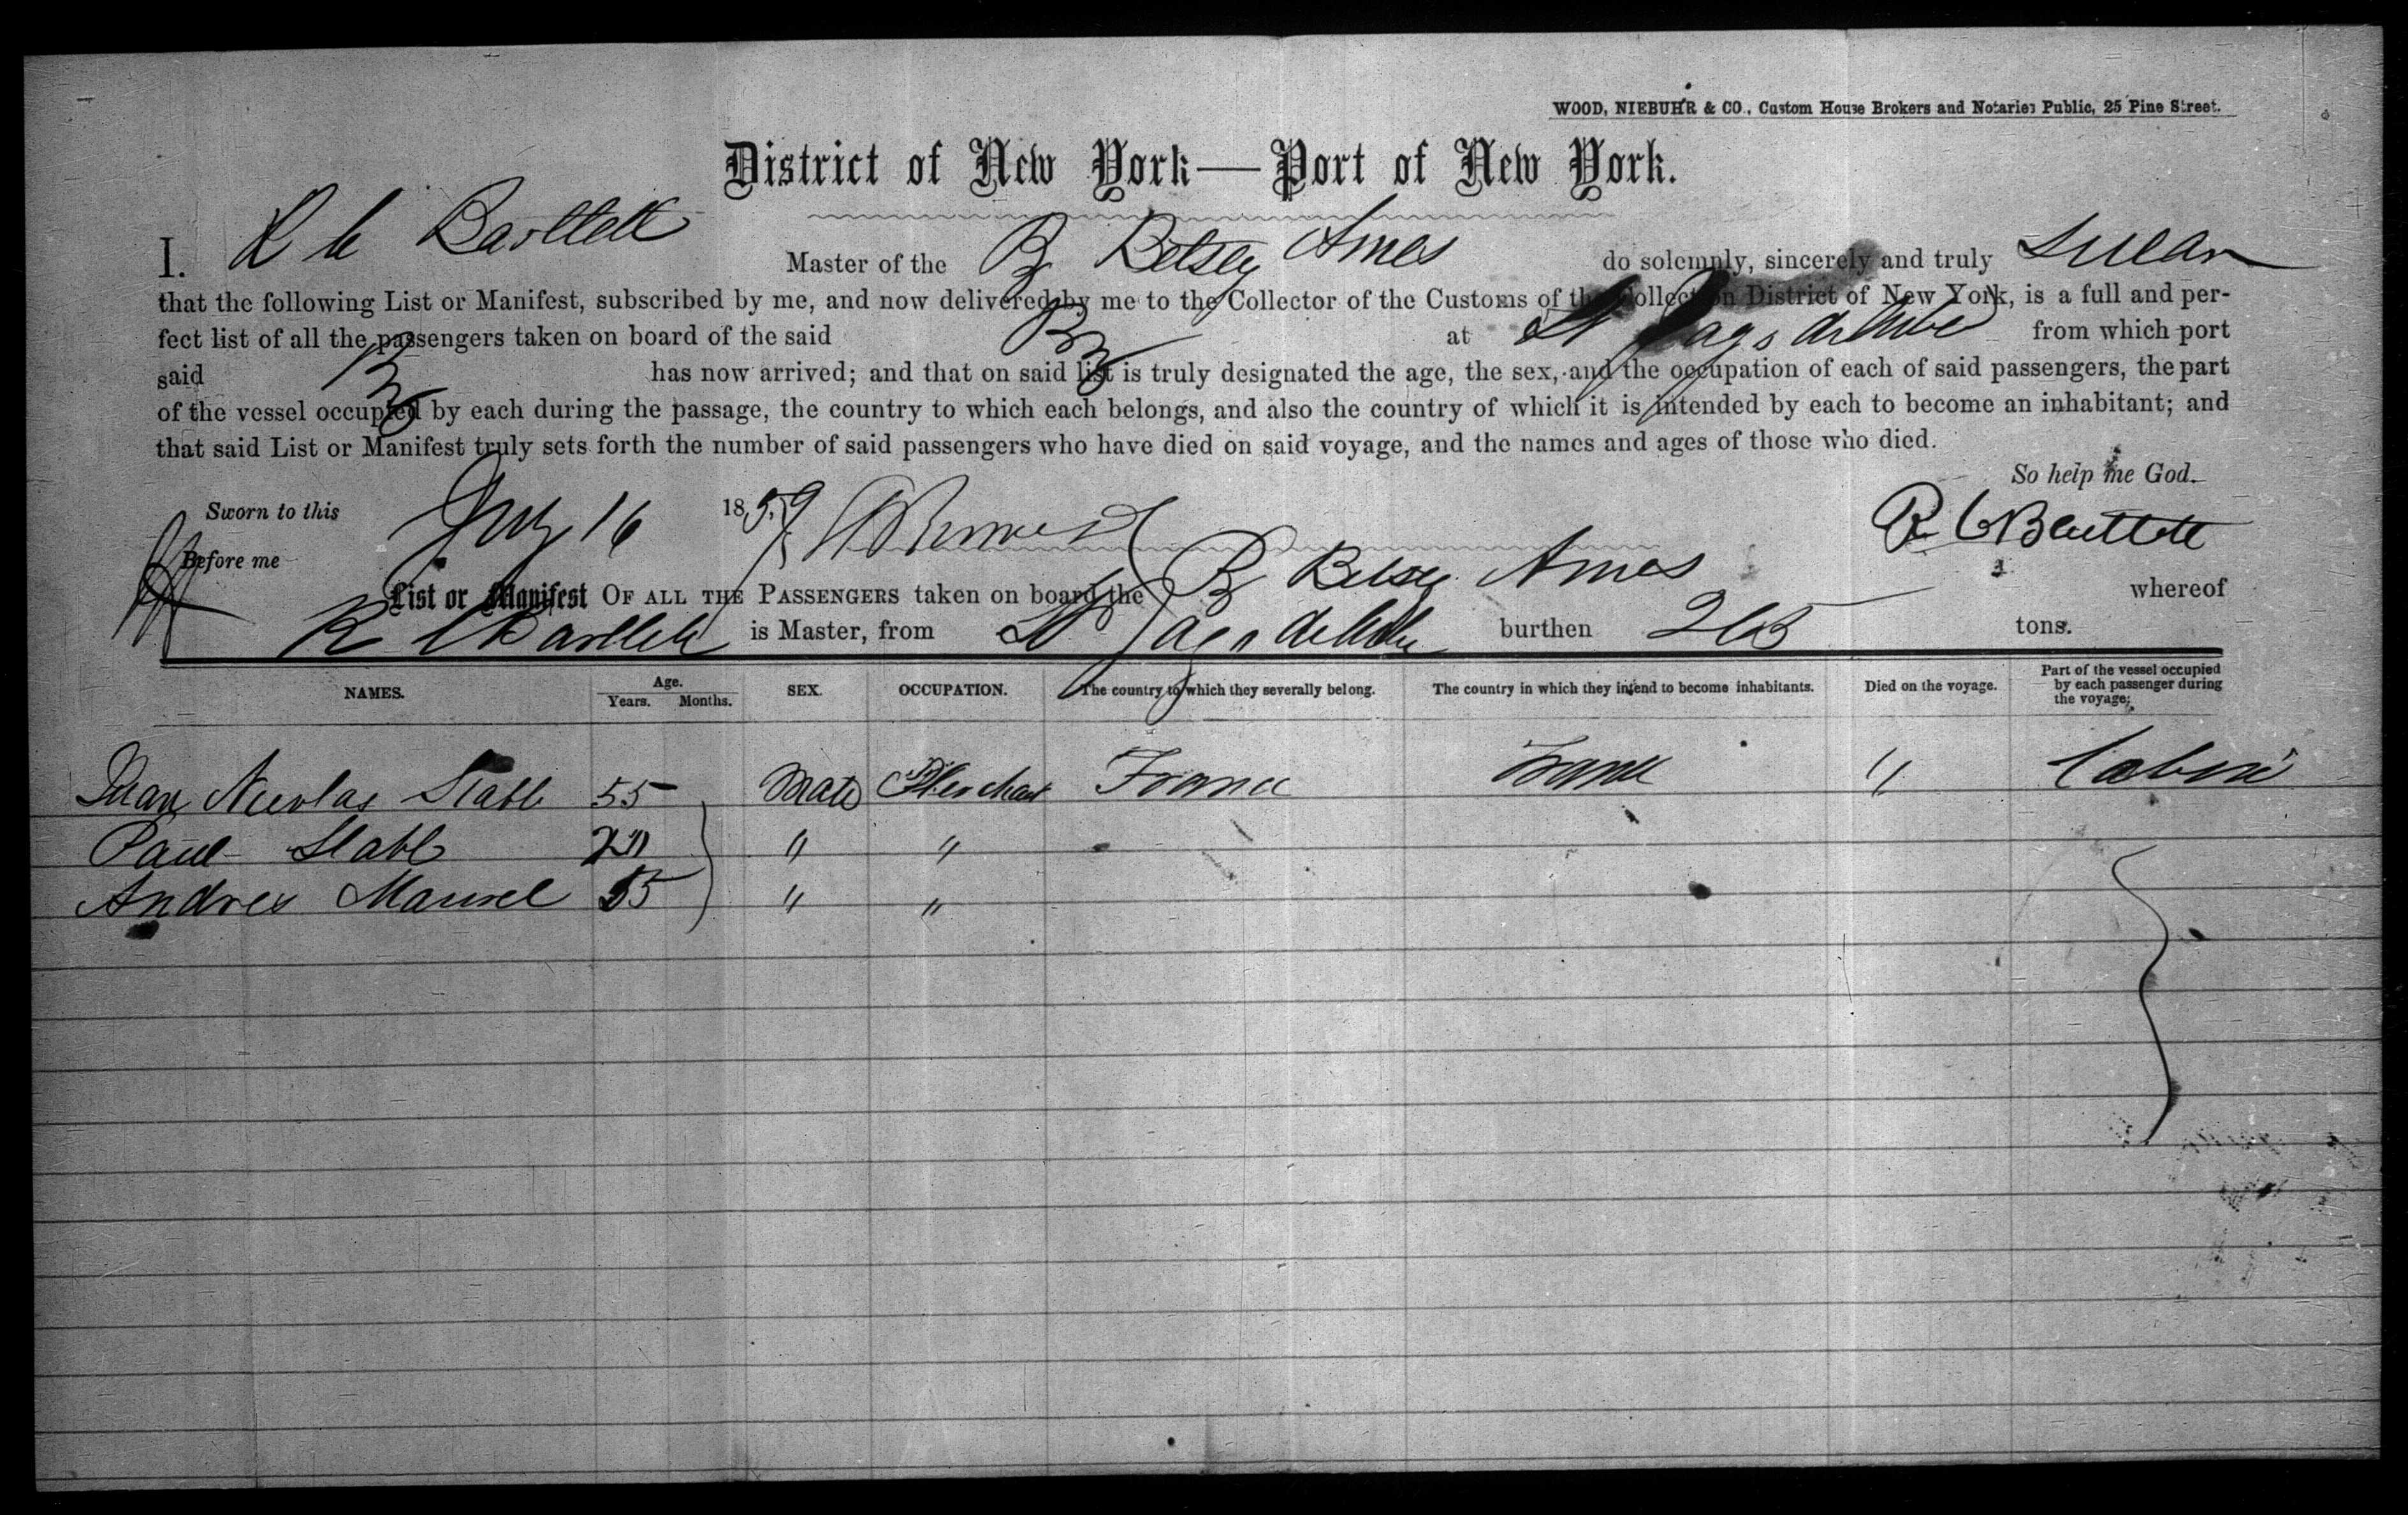 WOOD, NIEBUHR & CO., Custom House Brokers and Notaries Public, 25 Pine Street.
District of New York—Port of New York.
I. R C Bartlett Master of the Br Betsey Ames do solemnly, sincerely and truly swear
that the following List or Manifest, subscribed by me, and now delivered by me to the Collector of the Customs of the Collection District of New York, is a full and per-
fect list of all the passengers taken on board of the said Brg at St Jago de Cuba from which port
said Brg has now arrived; and that on said list is truly designated the age, the sex, and the occupation of each of said passengers, the part
of the vessel occupied by each during the passage, the country to which each belongs, and also the country of which it is intended by each to become an inhabitant; and
that said List or Manifest truly sets forth the number of said passengers who have died on said voyage, and the names and ages of those who died.
So help me God.
Sworn to this July 16 1859 R C Bartlett
Before me
List or Manifest OF ALL THE PASSENGERS taken on board the Br Betsey Ames whereof
R C Bartlett is Master, from St Jago de Cuba burthen 265 tons.
NAMES. Age. Years. Months. SEX. OCCUPATION. The country to which they severally belong. The country in which they intend to become inhabitants. Died on the voyage. Part of the vessel occupied by each passenger during the voyage.
Juan Nicolas Stabl 55 Male Merchant France France " Cabin
Paul Stabl 20 " "
Andres Manuel 55 " "